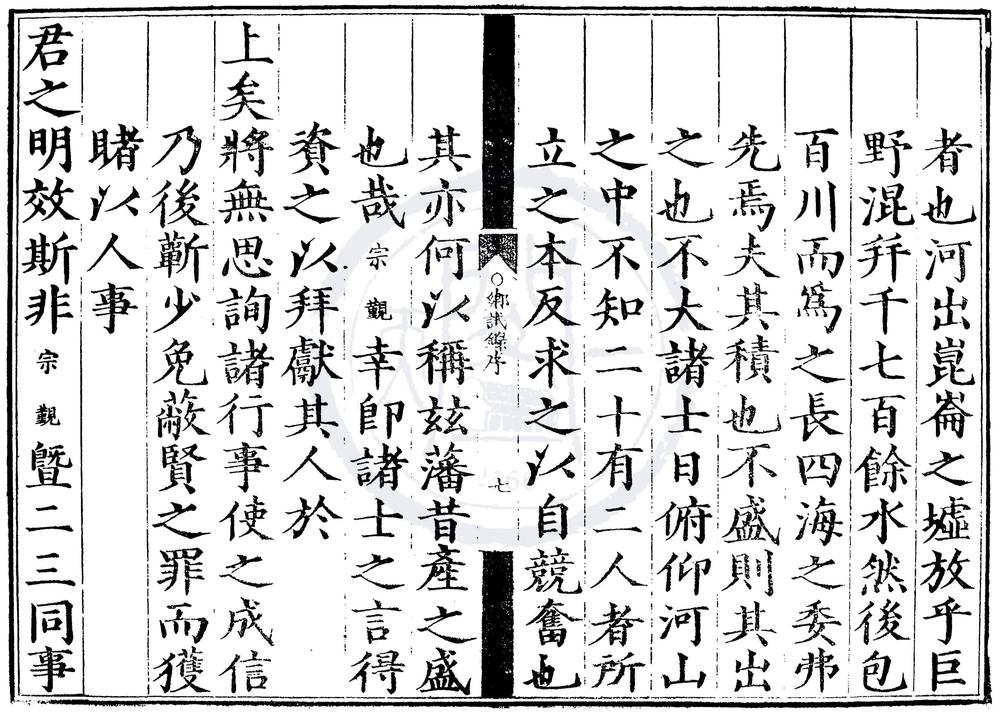 者也河出崑崙之墟放乎巨
野混幷千七百餘水然後包
百川而爲之長四海之委弗
先焉夫其積也不盛則其出
之也不大諸士日俯仰河山
之中不知二十有二人者所
立之本反求之以自競奮也
○鄉試錄序
七
其亦何以稱玆藩昔產之盛
也哉宗觀幸卽諸士之言得
資之以拜獻其人於
上矣將無思詢諸行事使之成信
乃後蘄少免蔽賢之罪而獲
睹以人事
君之明效斯非宗觀暨二三同事